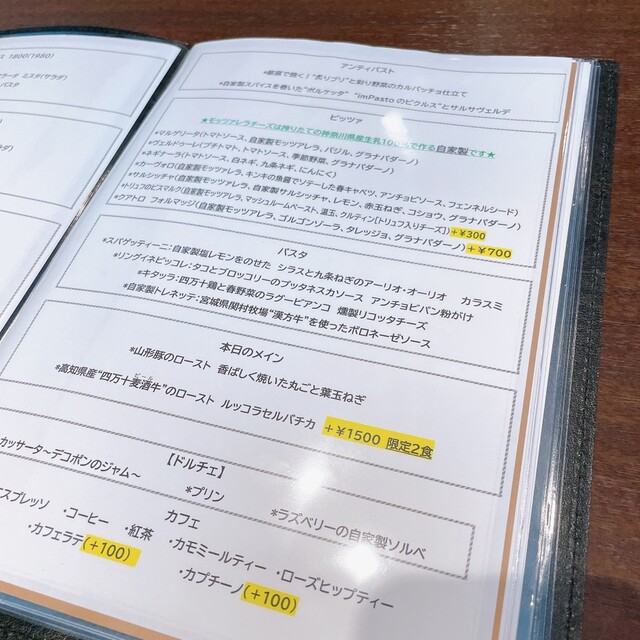 1800(1980)
ミスタ(サラダ)
パスタ
アンティパスト
*藁窯で焼く！"炙りブリ"と彩り野菜のカルパッチョ仕立て
*自家製スパイスを巻いた"ポルケッタ" "imPastoのピクルス"とサルサヴェルデ
ピッツァ
★モッツアレラチーズは搾りたての神奈川県産生乳100％で作る自家製です★
*マルゲリータ(トマトソース、自家製モッツアレラ、バジル、グラナパダーノ)
*ヴェルドゥーレ(プチトマト、トマトソース、季節野菜、グラナパダーノ)
*ネギナーラ(トマトソース、白ネギ、九条ネギ、にんにく)
*カーヴォロ(自家製モッツアレラ、キンキの魚醤でソテーした春キャベツ、アンチョビソース、フェンネルシード)
*サルシッチャ(自家製モッツアレラ、自家製サルシッチャ、レモン、赤玉ねぎ、コショウ、グラナパダーノ)
*トリュフのビスマルク(自家製モッツアレラ、マッシュルームペースト、温玉、クルティン[トリュフ入りチーズ])+¥300
*クアトロ フォルマッジ(自家製モッツアレラ、ゴルゴンゾーラ、タレッジョ、グラナパダーノ)+¥700
パスタ
*スパゲッティーニ：自家製塩レモンをのせた シラスと九条ねぎのアーリオ・オーリオ カラスミ
*リングイネピッコレ：タコとブロッコリーのプッタネスカソース アンチョビパン粉がけ
*キタッラ：四万十鶏と春野菜のラグービアンコ 燻製リコッタチーズ
*自家製トレネッテ：宮城県関村牧場"漢方牛"を使ったボロネーゼソース
本日のメイン
*山形豚のロースト 香ばしく焼いた丸ごと葉玉ねぎ
*高知県産"四万十麦酒牛"のロースト ルッコラセルバチカ +¥1500 限定2食
【ドルチェ】
カッサータ～デコポンのジャム～ *プリン *ラズベリーの自家製ソルベ
カフェ
スプレッソ ・コーヒー ・紅茶 ・カモミールティー ・ローズヒップティー
・カフェラテ(+100) ・カプチーノ(+100)